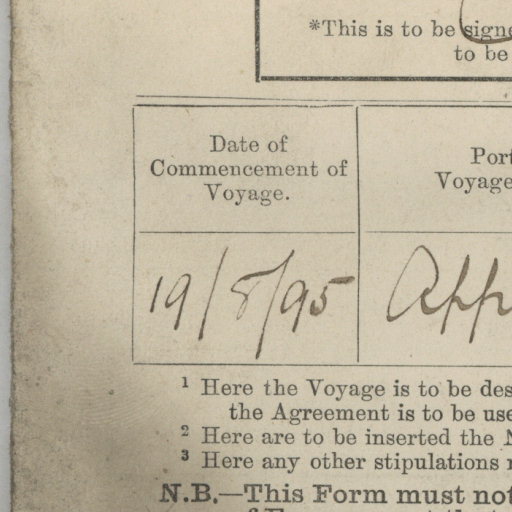 *This is to be signe
to be
Date of
Commencement of
Voyage.
Port
Voyage
19/8/95
App
¹ Here the Voyage is to be des
the Agreement is to be use
² Here are to be inserted the N
³ Here any other stipulations
N.B.—This Form must not